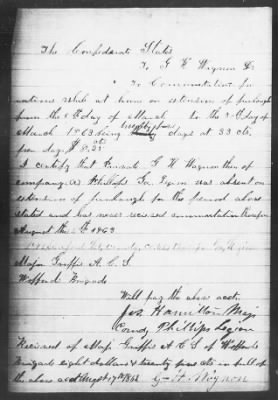 The Confederate States
To G H Wignon Dr
" To Commutation for
rations while at home on extension of furlough
from the day of March to the day of
March 1863 being twenty five days at 33 cts
per day $8.25
I certify that Private G H Wagnon then of
company Phillips Ga Legion was absent on
extension of furlough for the period above
stated and has never received commutation therefor
August the 1863
Major Griffis A.C.S
Wofford Brigade
Will pay the above acct.
Jos Hamilton Maj
Comdg Phillips Legion
Received of Maj Griffis A C S of Woffords
Brigade eight dollars & twenty five cts in full of
the above acct August 17th 1863 G H Wignon